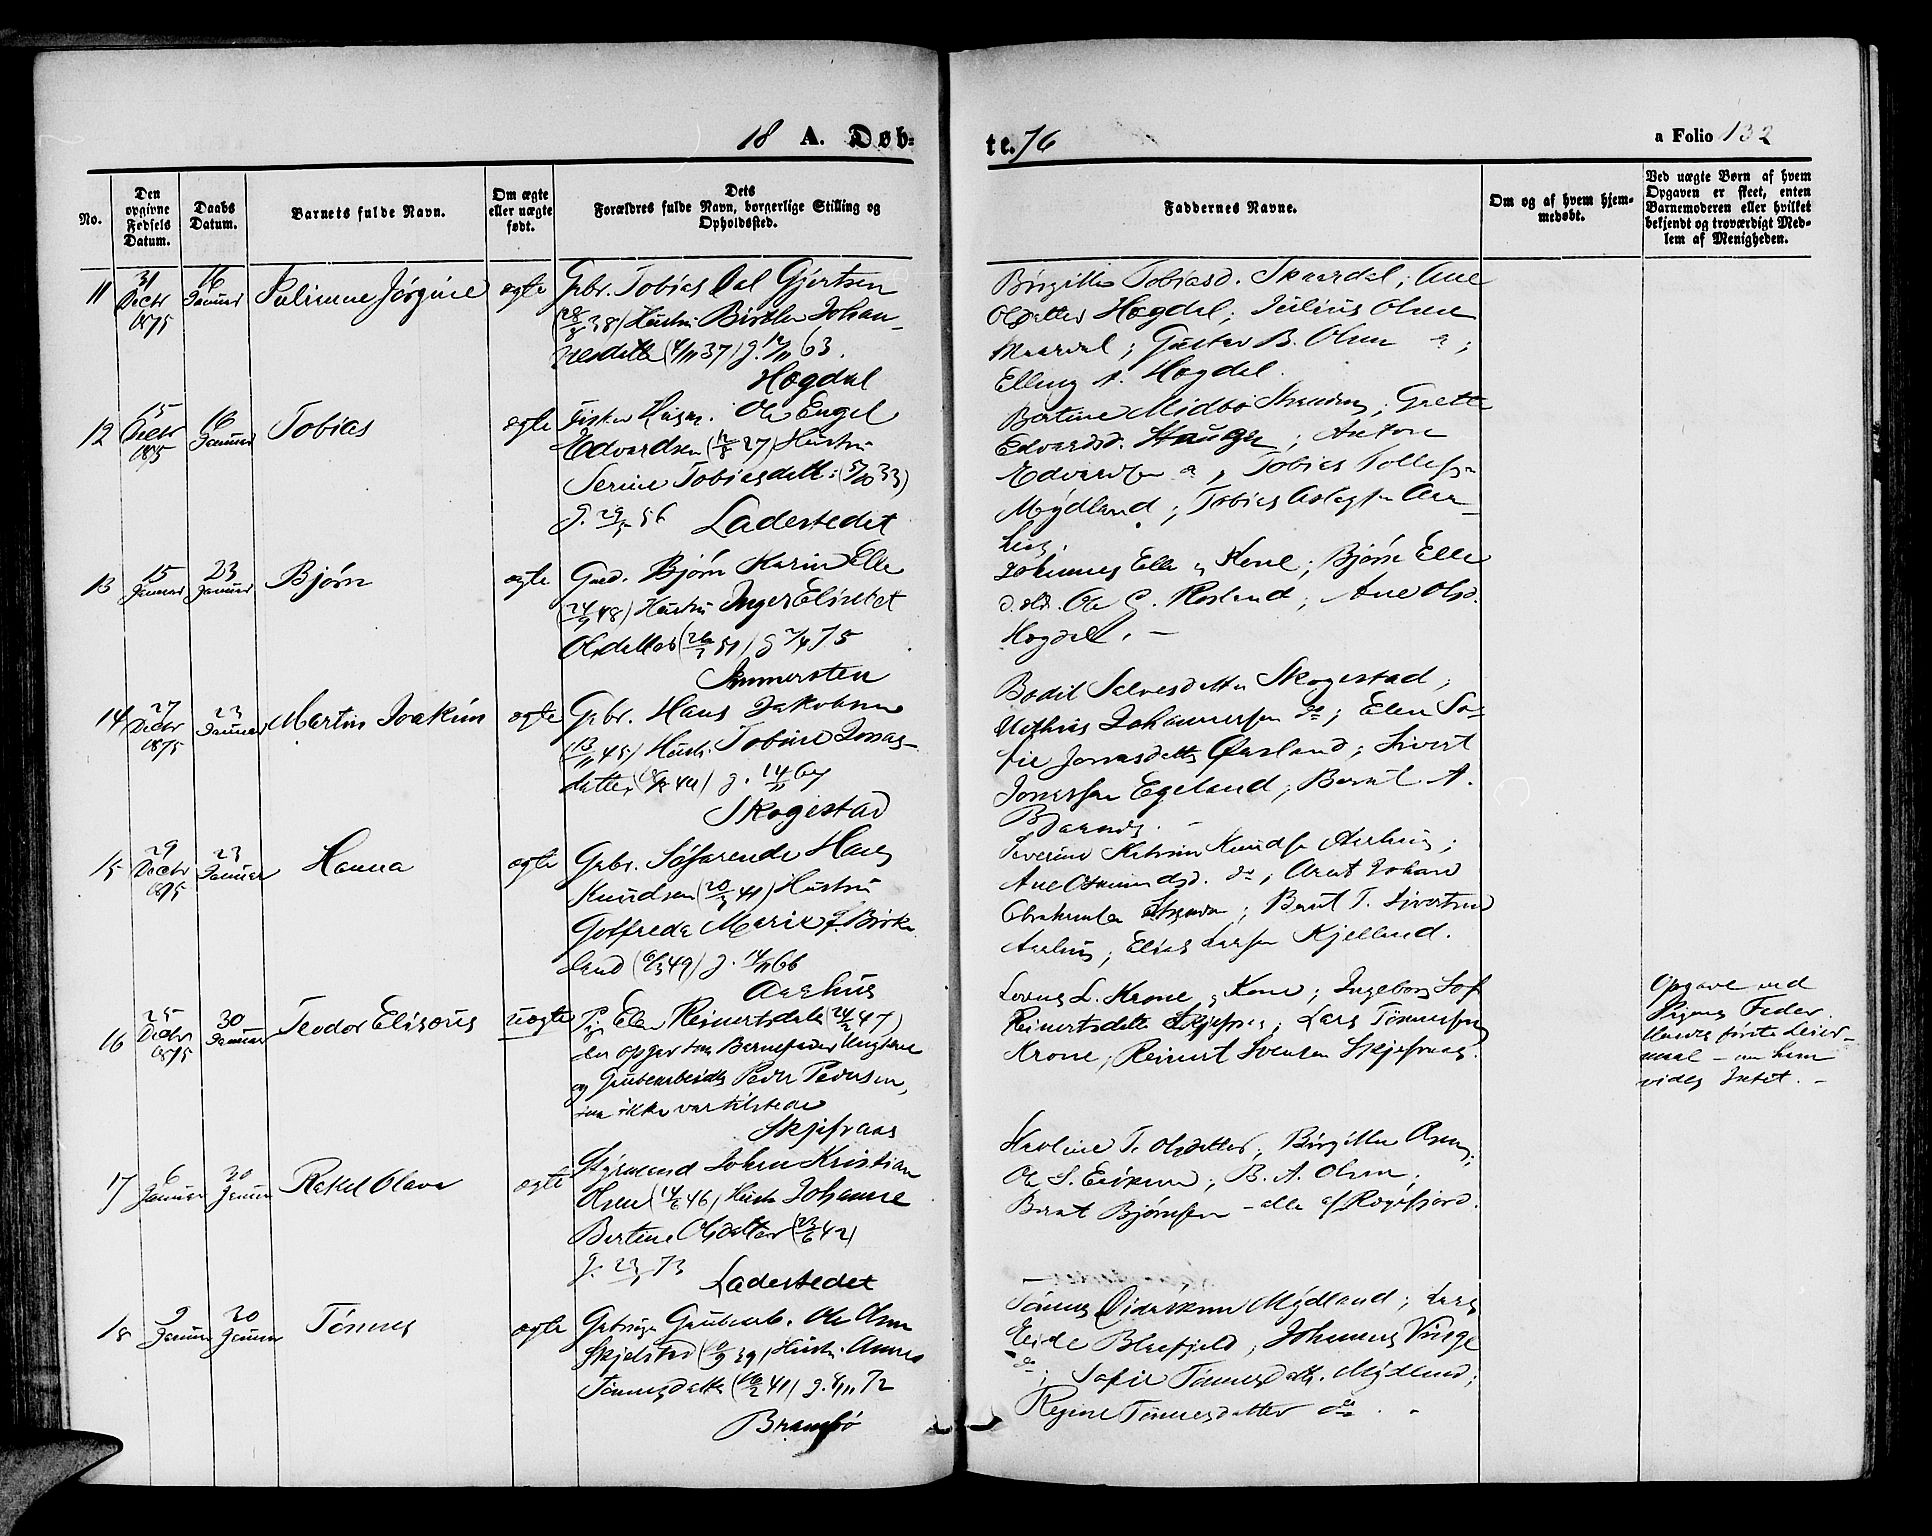 18 A. Døb-
te. 76
a Folio 132
No.
Den opgivne Fødsels Datum.
Daabs Datum.
Barnets fulde Navn.
Om ægte eller uægte født.
Dets Forældres fulde Navn, borgerlige Stilling og Opholdssted.
Faddernes Navne.
Om og af hvem hjem-
medøbt.
Ved uægte Børn af hvem
Opgaven er skeet, enten
Barnemoderen eller hvilket
bekjendt og troværdigt Med-
lem af Menigheden.
11
31 Decbr 1875
16 Januar
Paline Jørgine
ægte
Gbr. Tobias Dal Gjertsen
(28/8 38) Hustru Birthe Johan-
nesdatter (4/11 37) g. 12/11 63.
Hogdal
Birgitte Tobiasd. Skaardal; Ane
Olsdatter Hogdal; Julius Olsen
Maardal; Gustav B. Olsen
Elling A. Hogdal.
12
15 Decbr 1875
16 Januar
Tobias
ægte
Ole Engel
Edvardsen (12/8 27) Hustru
Serine Tobiasdatt: (5/10 33)
Ladestedet
Bertine Midbø; Grette
Edvardsd. Haugen; Anton
Edvardsen; Tobias Tollefsen
Mydland; Tobias Aslagsen Aar-
hus.
13
15 Januar
23 Januar
Bjørn
ægte
Gaed. Bjørn Karin Elle
(24/9 48) Hustru Inger Elisabet
Olsdatter (26/7 51) g 2/4 75
Immersten
Johannes Elle & Kone; Bjørn Elle
Ole G. Rosland; Ane Olsd.
Hogdal. -
14
27 Decbr 1875
23 Januar
Martin Joakim
ægte
Gbr. Hans Jakobsen
(13/11 45) Hustr. Tobine Jonas-
datter 49) g. 14/11 67
Skogestad
Bodil Salvesdatter Skogestad;
Mathias Johannessen do; Elen So-
fie Jonasdatter Ørsland; Sivert
Jonassen Egeland; Berent A.
15
29 Decbr 1875
23 Januar
Hanna
ægte
Gbr. Søfarende Hans
Knudsen (20/3 41) Hustru
Goffreda Marie f. Birke-
land (6/3 49) g. 14/11 66
Aarhus
Severine Katrine Knudsd Aarhus;
Ane Osmundsd. do; Arent Johan
Abrahamsen; Bernt T. Sivertsen
Aarhus; Elias Larsen Kjelland.
16
25 Decbr 1875
30 Januar
Teodor Elisæus
uægte
Pige Elen Reinertsdatter (24/2 47)
der opgav som Barnefader Ungkarl
og Grubearbeider Peder Pedersen,
som ikke var tilstede
Skjefraas
Lovrus L. Krone & Kone; Ingeborg Sof.
Reinertsdatter Skjefraas; Lars Tønnessen
Krone; Reinert Svensen Skjefraas.
Opgave ved
Pigens Fader.
Hendes første Leier-
maal - om ham
vides Intet. -
17
6 Januar
30 Januar
Rakel Olava
ægte
Styrmand Johan Kristian
Olsen (14/6 46) Hustr Johanne
Bertine Olsdatter (23/6 42)
Ladestedet
Karoline T. Olsdatter; Birgitte Olsen;
Ole S. Eriksen; B. A. Olsen;
Berent Bjørnsen - alle af Rægefjord.
18
9 Januar
30 Januar
Tønnes
ægte
Grubearb. Ole Olsen
Skjelstad 39) Hustr. Anne
Tønnesdatter 41) g. 4/11 72
Brambø
Tønnes Didriksen Mydland; Lars
Eide Blaafjeld; Johannes Vinge
do; Sofie Tønnesdatt. Mydland;
Regine Tønnesdatter do.